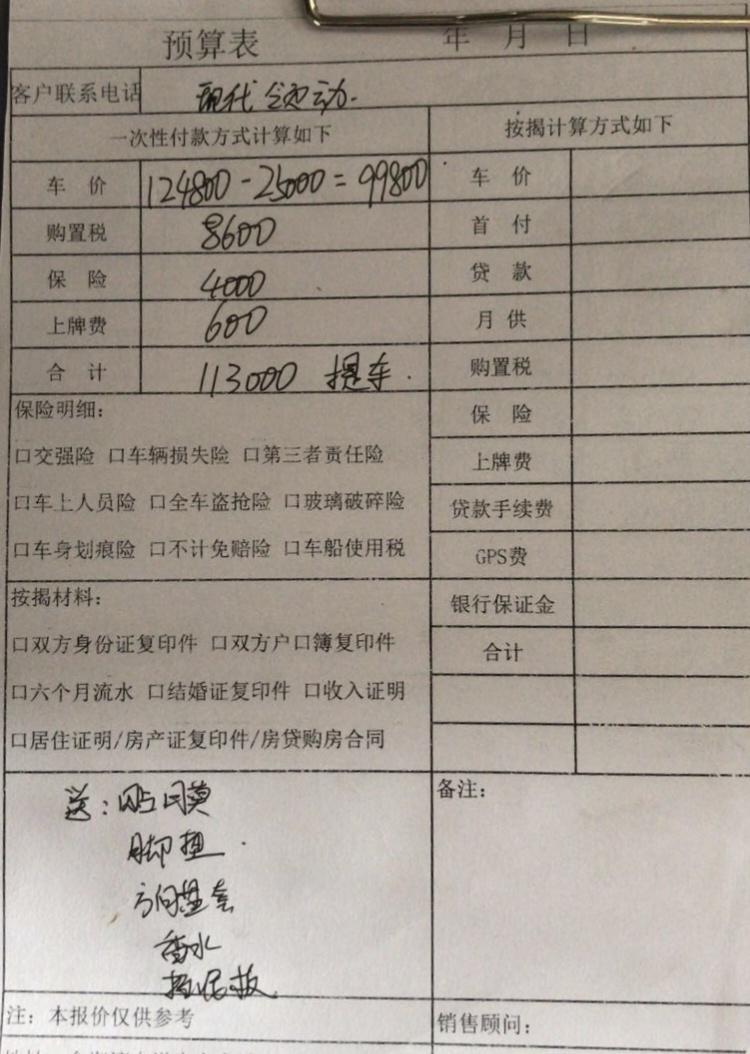 预算表 年 月 日
客户联系电话 现代 领动.
一次性付款方式计算如下 按揭计算方式如下
车 价 124800-25000=99800 车 价
购置税 8600 首 付
保 险 4000 贷 款
上牌费 600 月 供
合 计 113000 提车. 购置税
保险明细: 保 险
口交强险 口车辆损失险 口第三者责任险 上牌费
口车上人员险 口全车盗抢险 口玻璃破碎险 贷款手续费
口车身划痕险 口不计免赔险 口车船使用税 GPS费
按揭材料: 银行保证金
口双方身份证复印件 口双方户口簿复印件 合计
口六个月流水 口结婚证复印件 口收入证明
口居住证明/房产证复印件/房贷购房合同
送:贴膜 备注:
脚垫
方向盘套
香水
挡泥板
注: 本报价仅供参考 销售顾问: